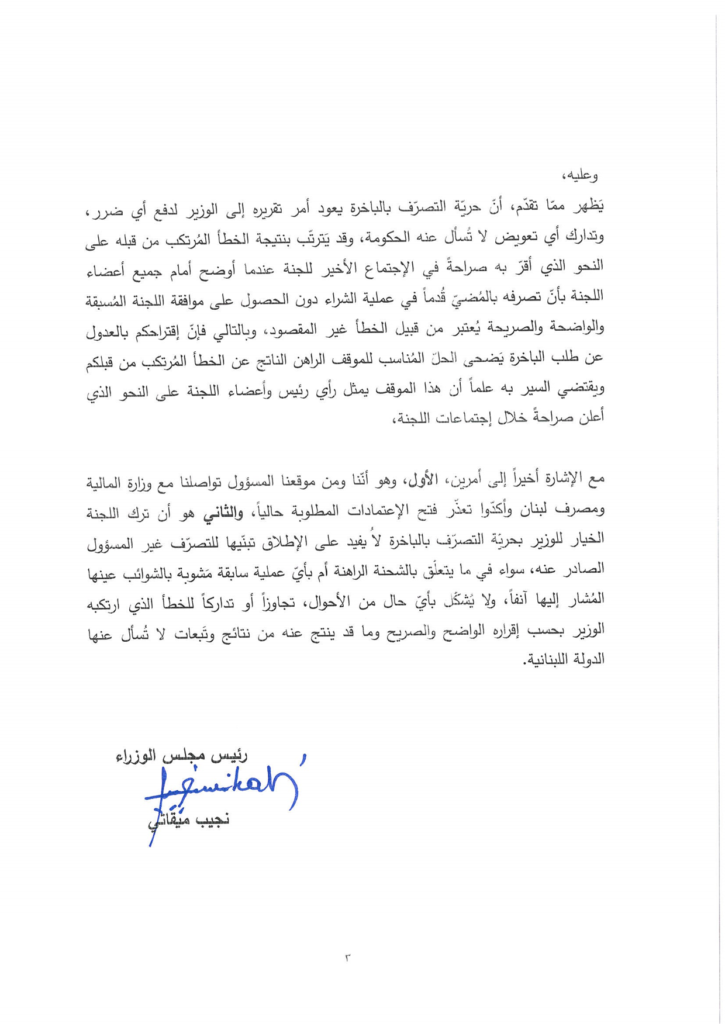 وعليه،
يَظهر ممّا تقدّم، أنّ حريّة التصرّف بالباخرة يعود أمر تقريره إلى الوزير لدفع أي ضرر،
وتدارك أي تعويض لا تُسأل عنه الحكومة، وقد يَترتّب بنتيجة الخطأ المُرتكب من قبله على
النحو الذي أقرّ به صراحةً في الإجتماع الأخير للجنة عندما أوضح أمام جميع أعضاء
اللجنة بأنّ تصرفه بالمُضيّ قُدماً في عملية الشراء دون الحصول على موافقة اللجنة المُسبقة
والواضحة والصريحة يُعتبر من قبيل الخطأ غير المقصود، وبالتالي فإنّ إقتراحكم بالعدول
عن طلب الباخرة يَضحى الحلّ المُناسب للموقف الراهن الناتج عن الخطأ المُرتكب من قبلكم
ويقتضي السير به علماً أن هذا الموقف يمثل رأي رئيس وأعضاء اللجنة على النحو الذي
أعلن صراحةً خلال إجتماعات اللجنة،
مع الإشارة أخيراً إلى أمرين، الأول، وهو أنّنا ومن موقعنا المسؤول تواصلنا مع وزارة المالية
ومصرف لبنان وأكدّوا تعذّر فتح الإعتمادات المطلوبة حالياً، والثاني هو أن ترك اللجنة
الخيار للوزير بحريّة التصرّف بالباخرة لا يفيد على الإطلاق تبنّيها للتصرّف غير المسؤول
الصادر عنه، سواء في ما يتعلّق بالشحنة الراهنة أم بأيّ عملية سابقة مَشوبة بالشوائب عينها
المُشار إليها آنفاً، ولا يُشكّل بأيّ حال من الأحوال، تجاوزاً أو تداركاً للخطأ الذي ارتكبه
الوزير بحسب إقراره الواضح والصريح وما قد ينتج عنه من نتائج وتَبعات لا تُسأل عنها
الدولة اللبنانية.
رئيس مجلس الوزراء
نجيب ميقاتي
٣